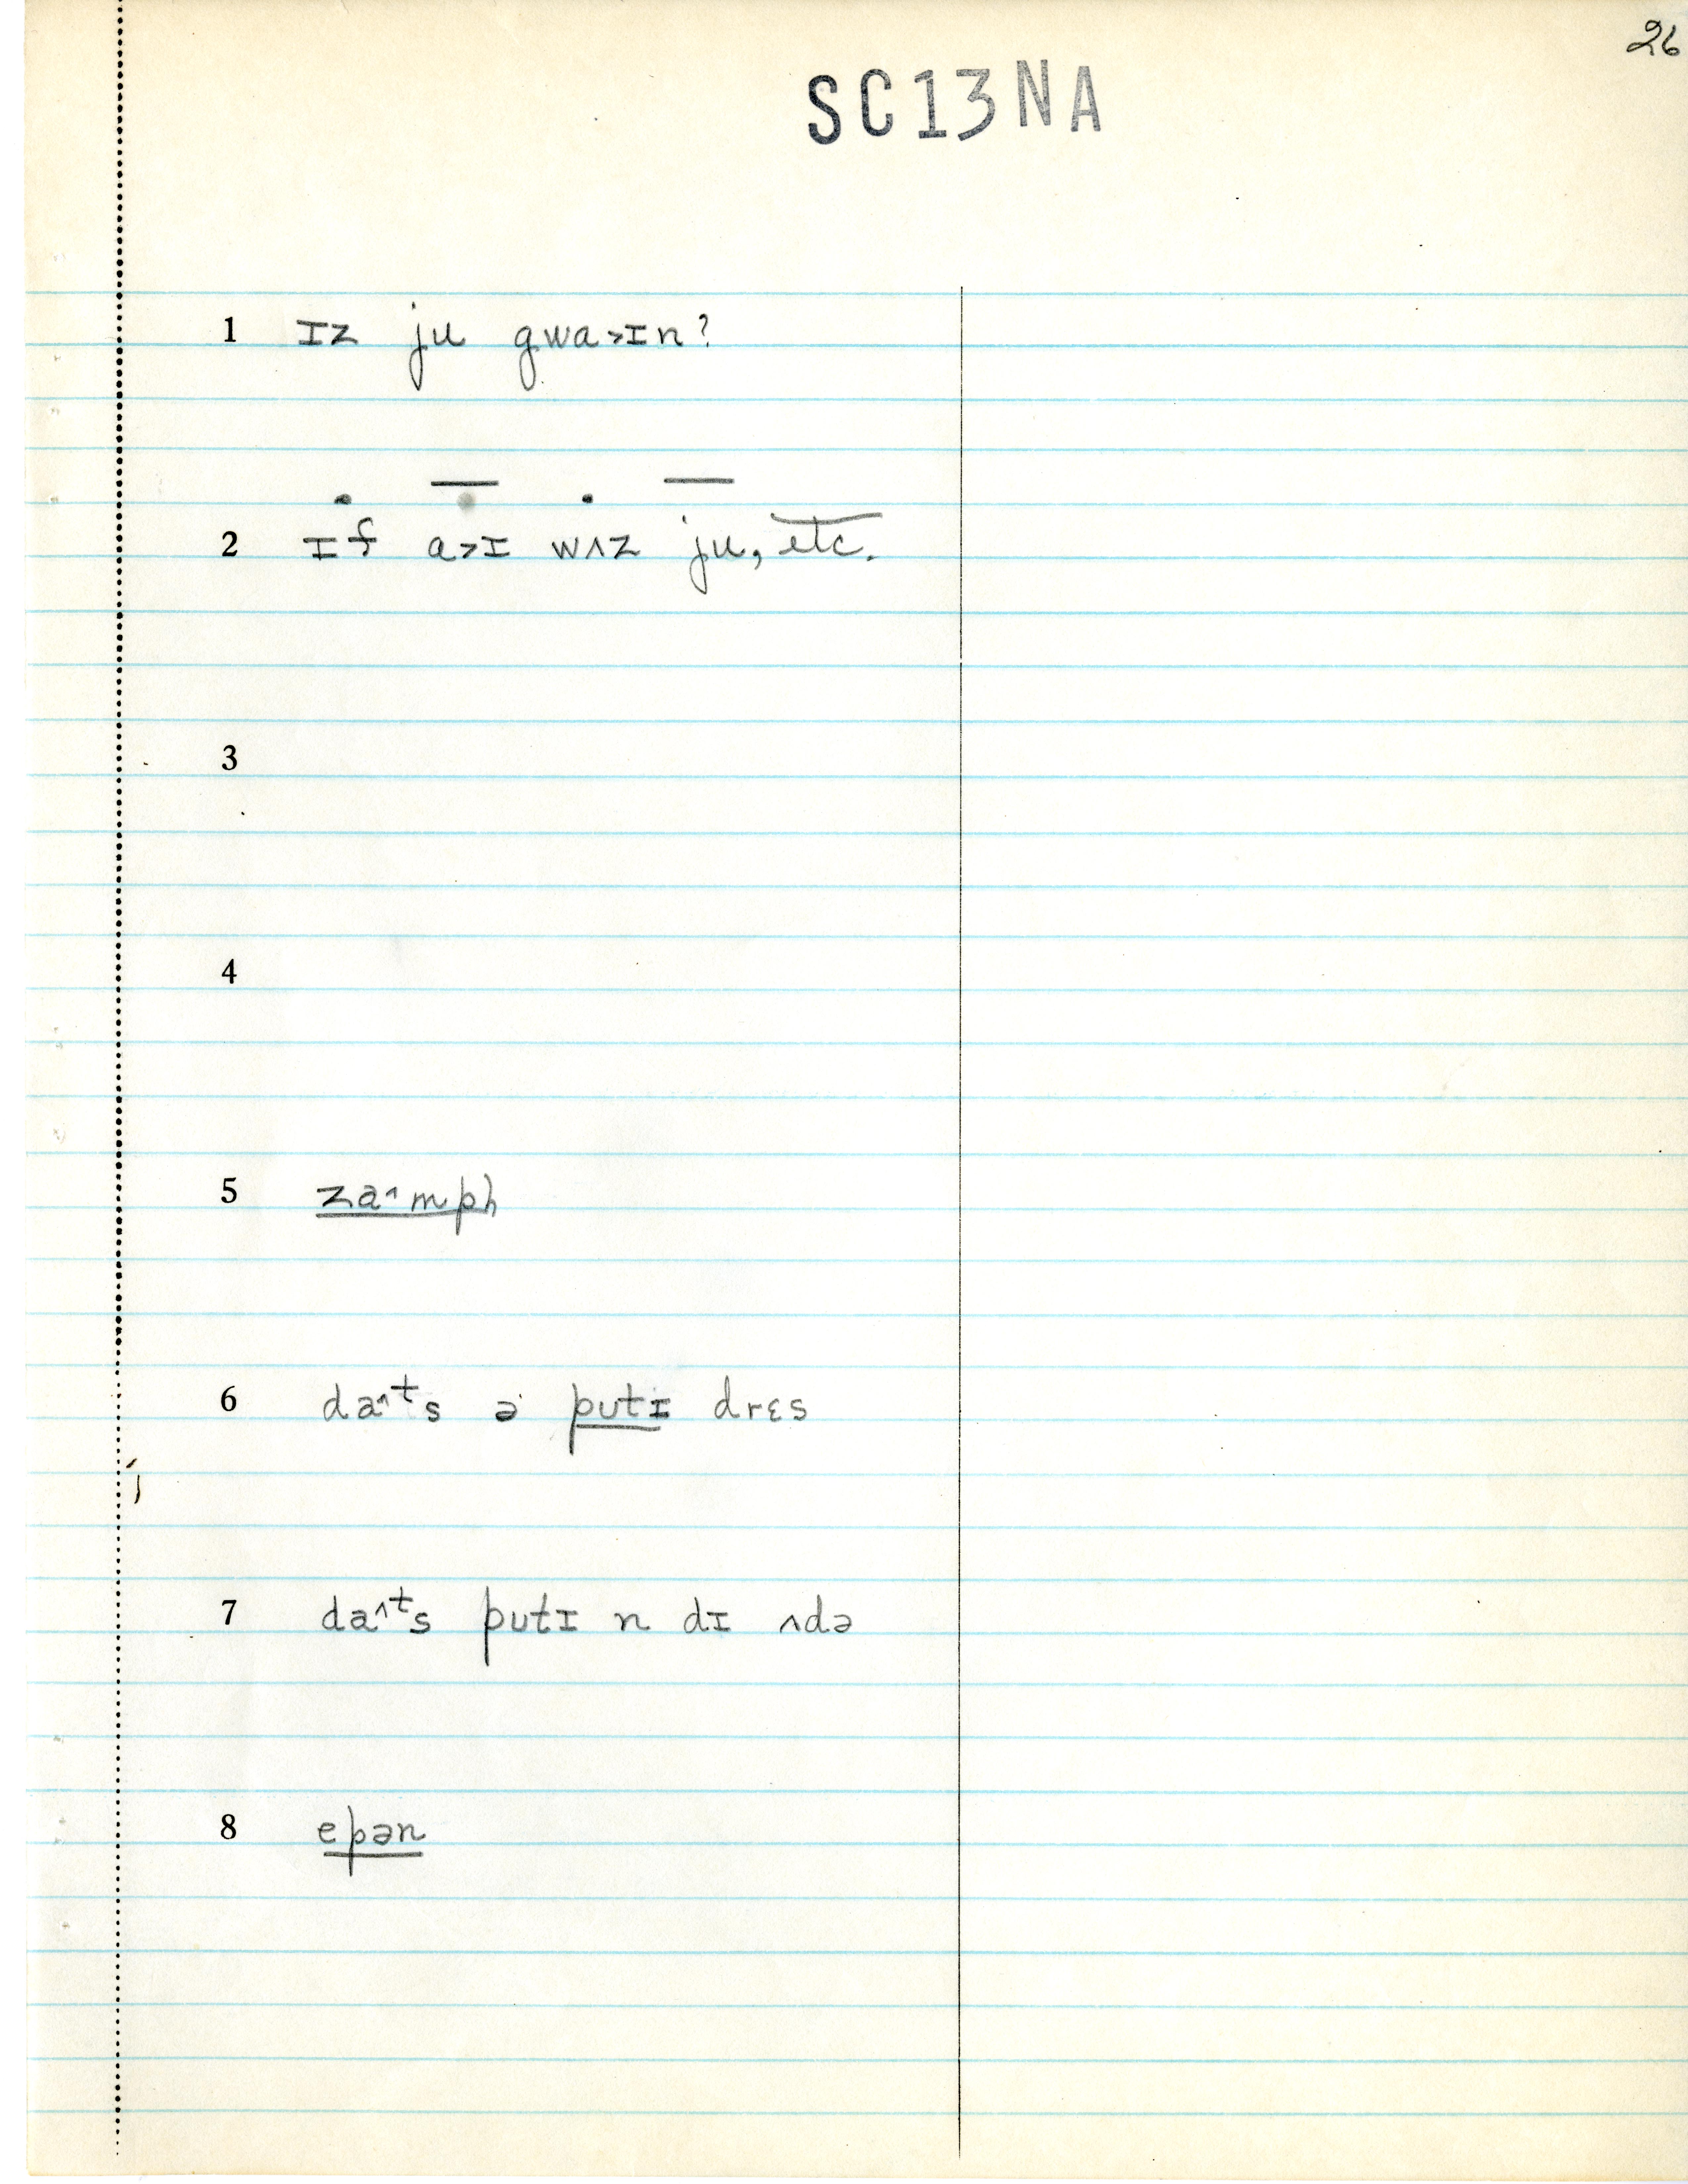 26
SC13NA
1 ɪz ju gwa˃ɪn?
2 ɪf a˃ɪ wʌz ju, etc.
3
4
5 za˄mph
6 da˄ᵗs ə putɪ drɛs
7 da˄ᵗs putɪ n dɪ ʌdə
8 epən